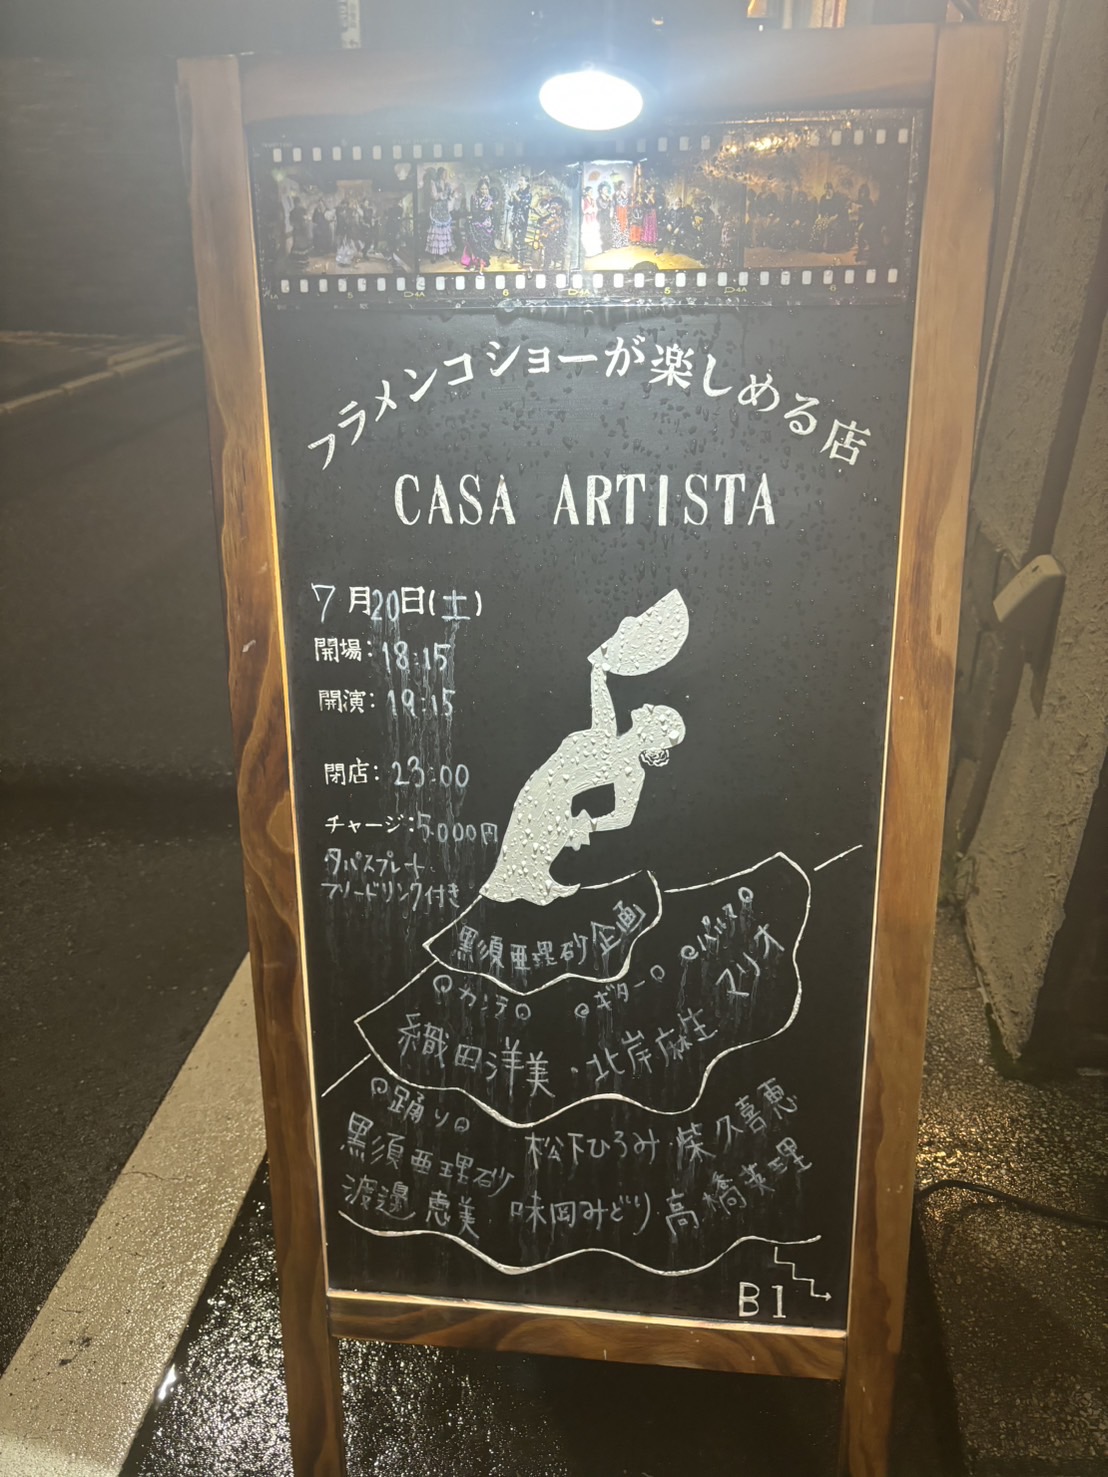 フラメンコショーが楽しめる店
CASA ARTISTA
7月20日(土)
開場: 18:15
開演: 19:15
閉店: 23:00
チャージ:5000円
タパスプレート
フリードリンク付き
黒須亜理砂企画
カンテ
ギター
パルマ
織田洋美・北岸麻生
マリオ
踊り
黒須亜理砂 松下ひろみ 柴久喜恵
渡邊恵美 味岡みどり 高橋英理
B1